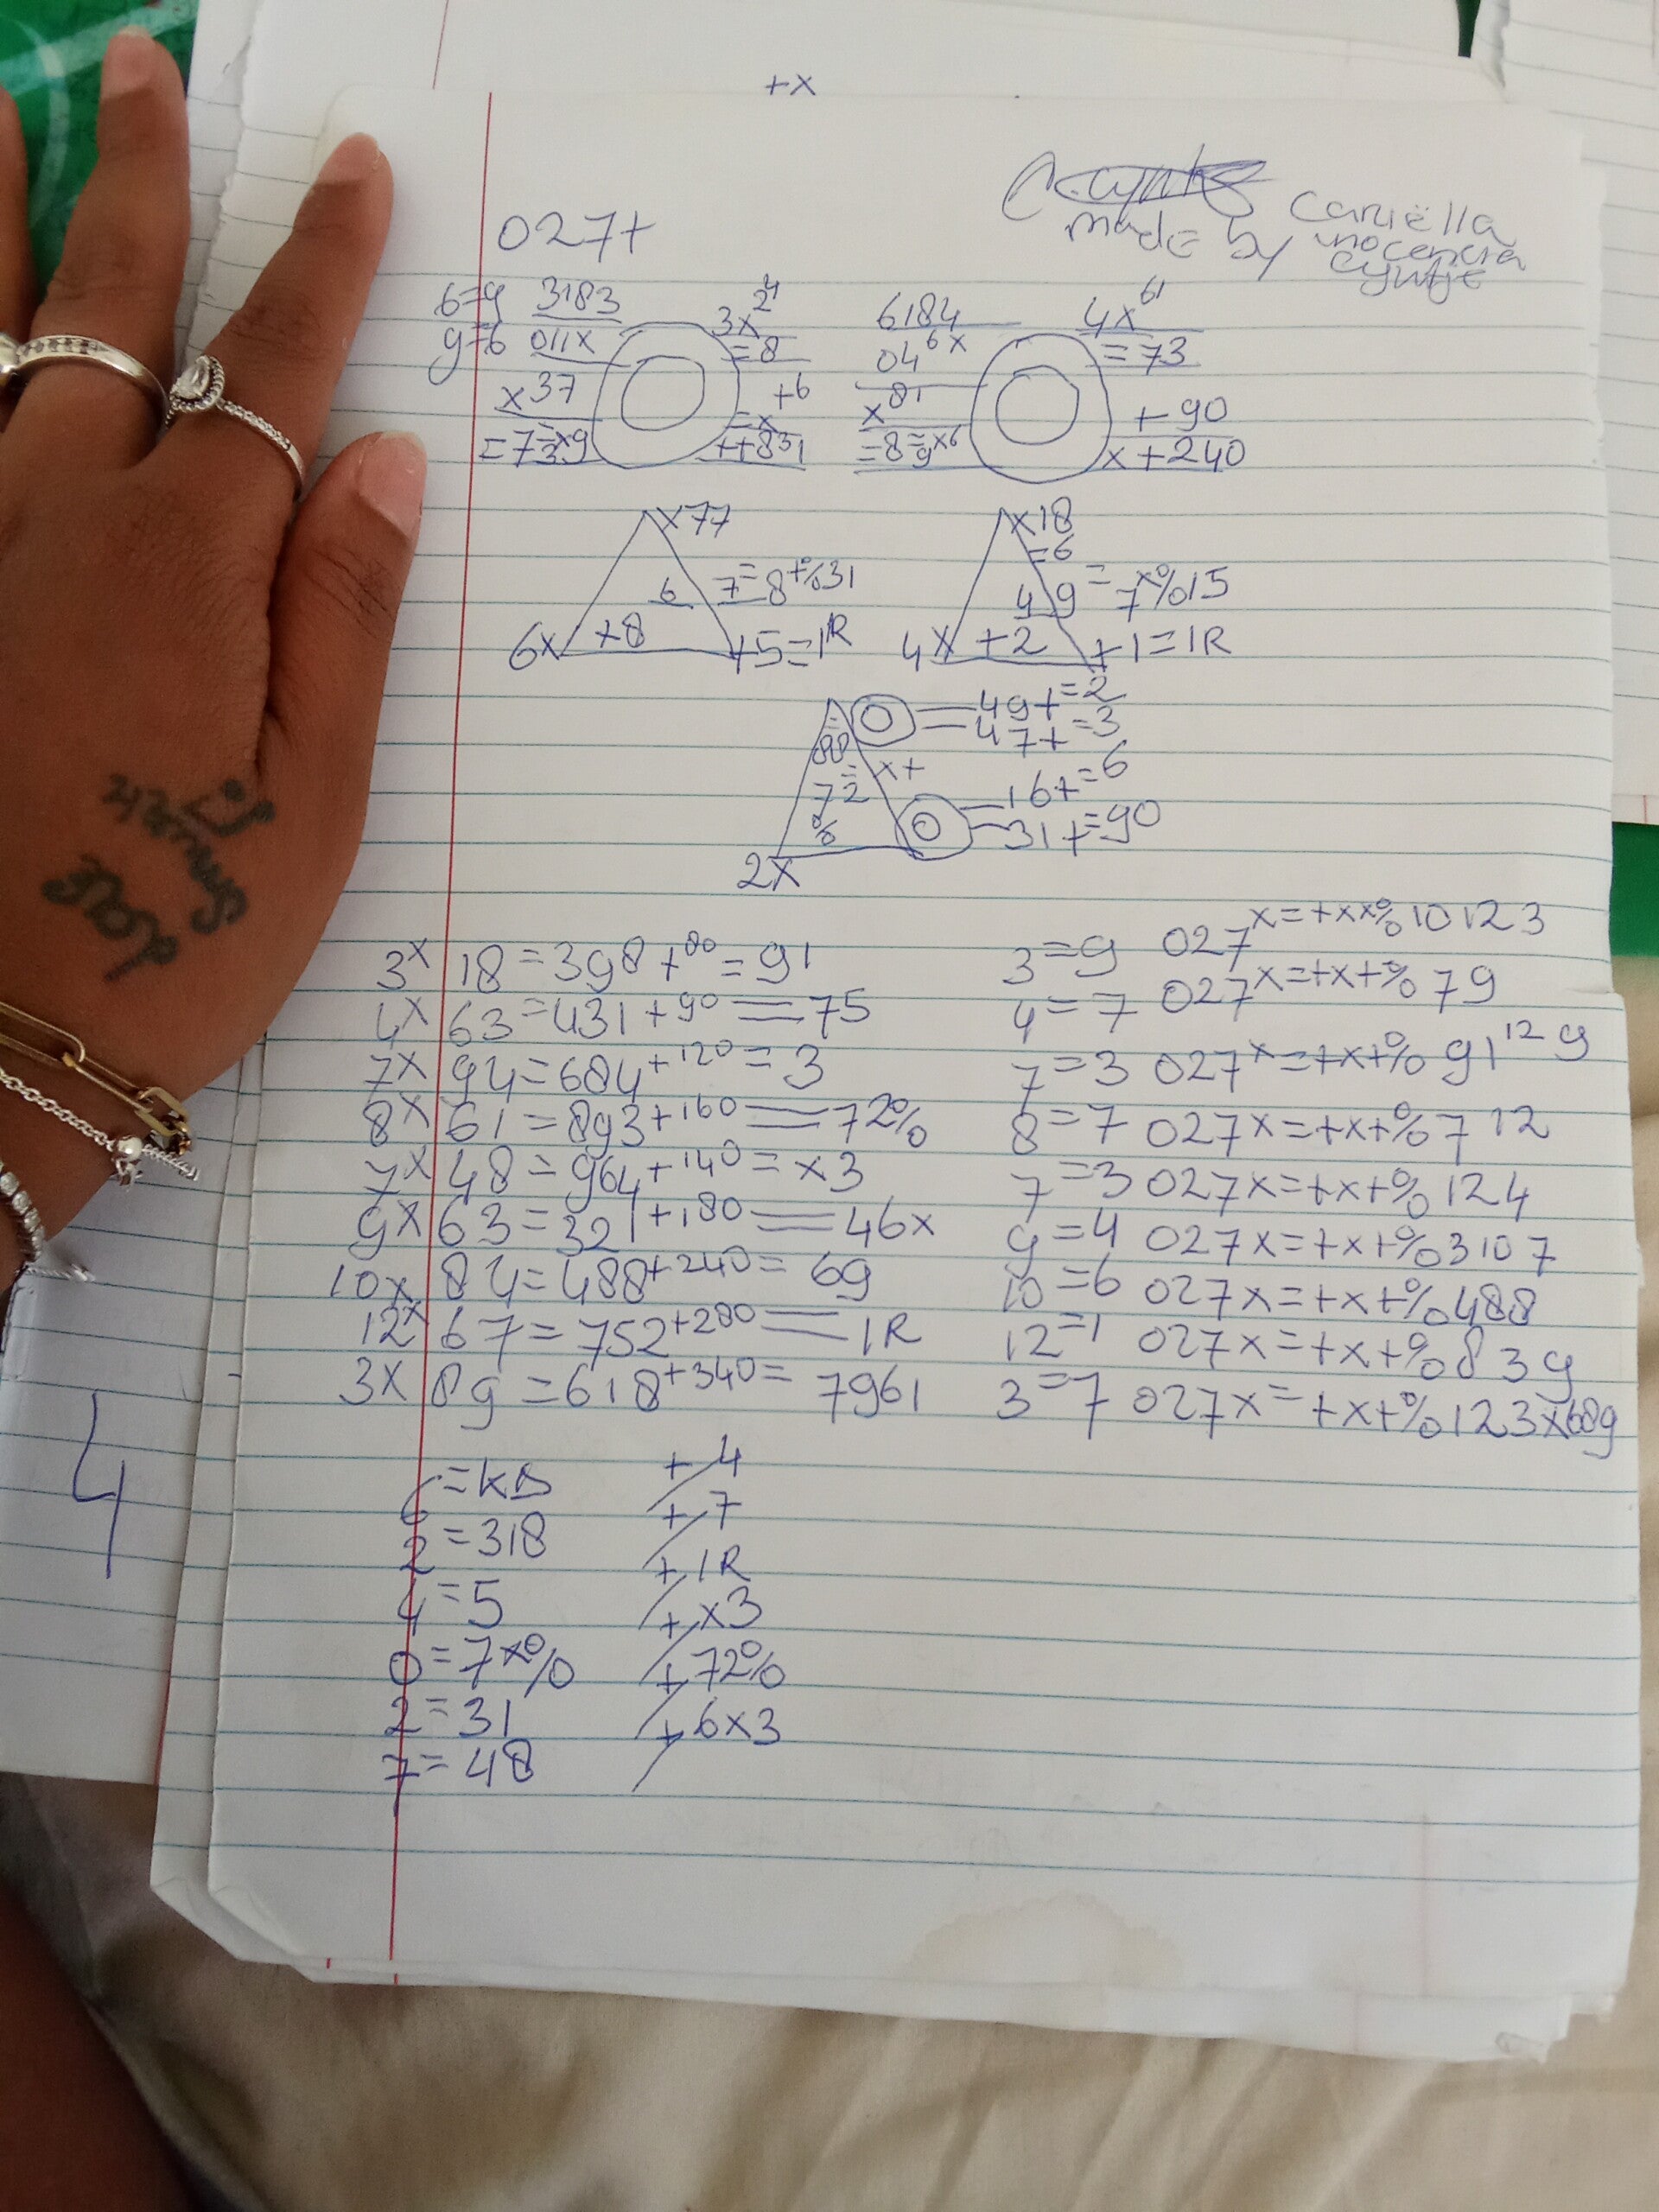 +x
made by Cariëlla
inocencia
cyntje
027+
6=9 3183 3x²⁴ 6184 4x⁶¹
9=6 011x =8 04⁶ˣ =73
x37 +6 x⁸¹ +90
=x
++831 x+240
x77 x18
=6
6 7=8+%31 4 9=7x%15
6x +8 +5=1R 4x +2 +1=1R
49+=2
47+=3
88 x+
7=2 16+=6
% 31+=90
2x
3x 18=398+80=91 3=9 027x=+xx%10123
4x 63=431+90=75 4=7 027x=+x+%79
7x 94=684+120=3 7=3 027x=+x+%91¹² 9
8x 61=893+160=72% 8=7 027x=+x+%712
7x 48=964+140=x3 7=3 027x=+x+%124
9x 63=321+180=46x 9=4 027x=+x+%3107
10x 84=488+240=69 10=6 027x=+x+%488
12x 67=752+280=1R 12=1 027x=+x+%839
3x 89=618+340=7961 3=7 027x=+x+%123x689
+4
2=318 +7
4=5 +1R
0=7x% +x3
2=31 +72%
7=48 +6x3
4